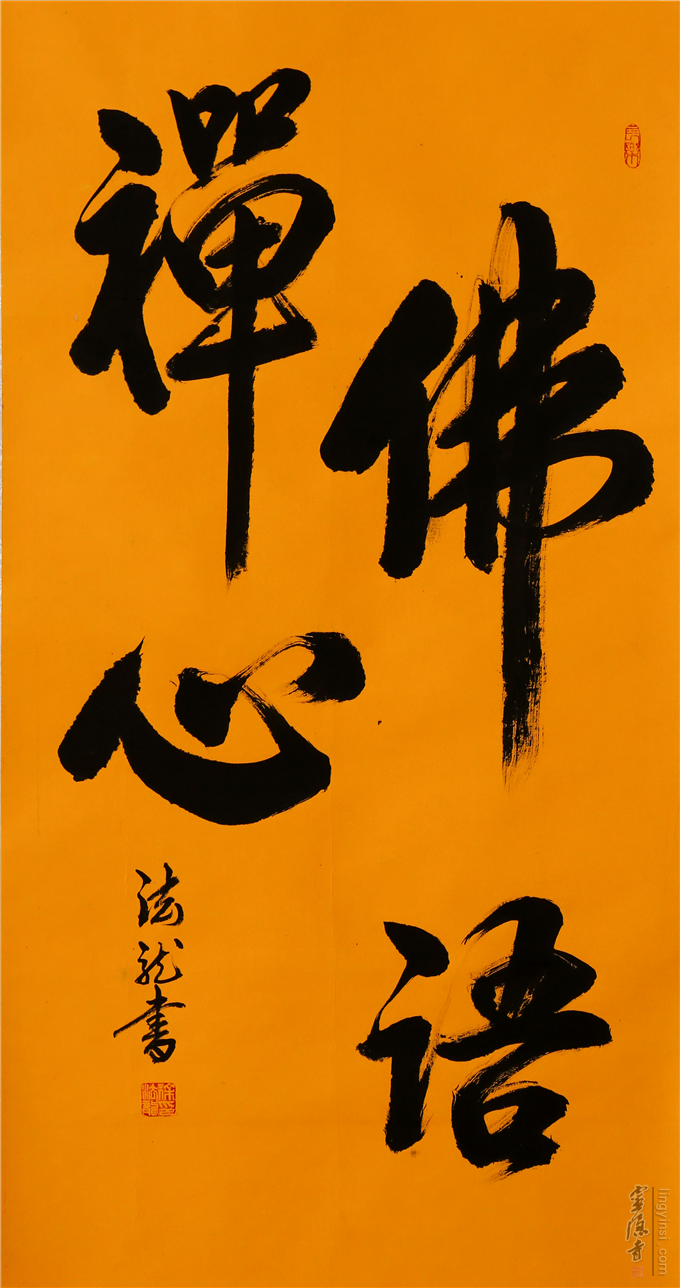 佛语
禪心
法龙书
靈隱寺
lingyinsi.com